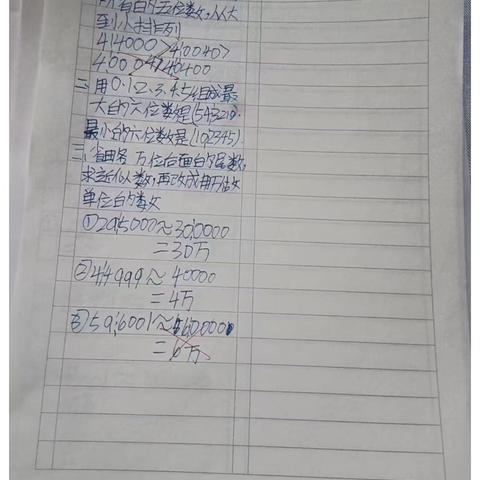 所有的五位数,从大
到小排列
414000>410040>
410004 40400
二、用0、1、2、3、4、5组成最
大的六位数是(543210)
最小的六位数是(102345).
三、省略 万位后面的尾数,
求近似数,再改成用万作
单位的数
①295000≈300000
=30万
②44999≈40000
=4万
③596001≈600000
=6万